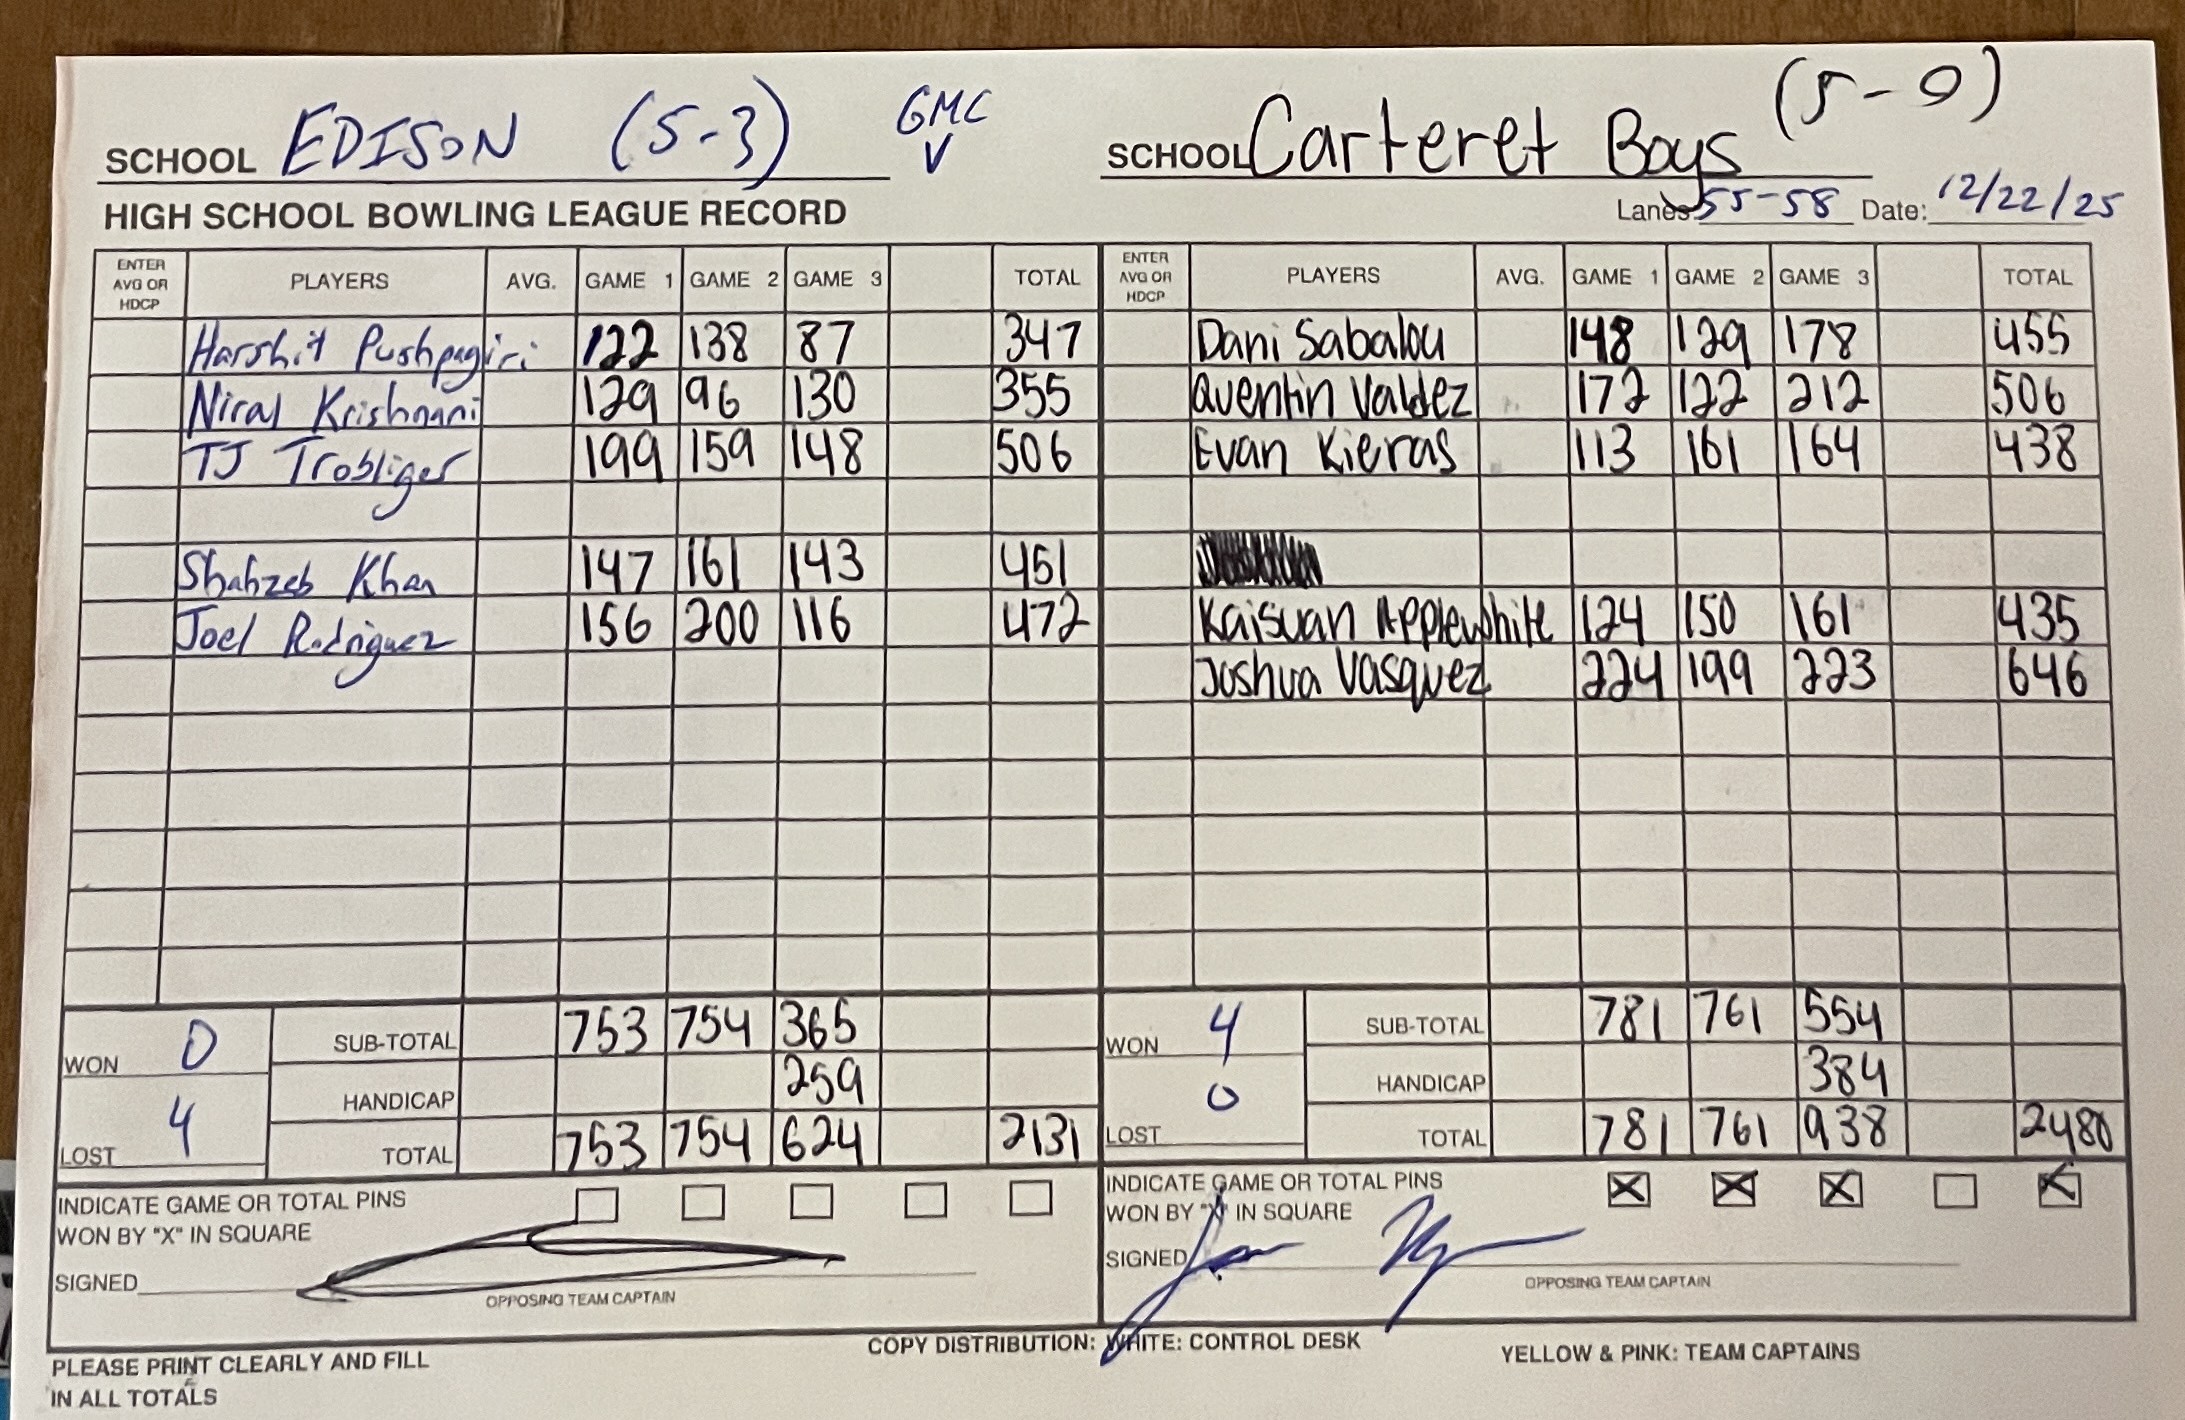 SCHOOL EDISON (5-3) GMC V
SCHOOL Carteret Boys (5-0)
HIGH SCHOOL BOWLING LEAGUE RECORD
Lanes 55-58 Date: 12/22/25
ENTER AVG OR HDCP PLAYERS AVG. GAME 1 GAME 2 GAME 3 TOTAL ENTER AVG OR HDCP PLAYERS AVG. GAME 1 GAME 2 GAME 3 TOTAL
Harshit Pushpagiri 122 138 87 347 Dani Sabalou 148 129 178 455
Niral Krishnani 129 96 130 355 Quentin Valdez 172 122 212 506
TJ Trobliger 199 159 148 506 Evan Kieras 113 161 164 438
Shahzeb Khan 147 161 143 451
Joel Rodriguez 156 200 116 472 Kaisuan Applewhite 124 150 161 435
Joshua Vasquez 224 199 223 646
WON 0 SUB-TOTAL 753 754 365 WON 4 SUB-TOTAL 781 761 554
HANDICAP 259 HANDICAP 384
LOST 4 TOTAL 753 754 624 2131 LOST 0 TOTAL 781 761 938 2480
INDICATE GAME OR TOTAL PINS INDICATE GAME OR TOTAL PINS X X X X
WON BY "X" IN SQUARE WON BY "X" IN SQUARE
SIGNED SIGNED
OPPOSING TEAM CAPTAIN OPPOSING TEAM CAPTAIN
COPY DISTRIBUTION: WHITE: CONTROL DESK YELLOW & PINK: TEAM CAPTAINS
PLEASE PRINT CLEARLY AND FILL
IN ALL TOTALS